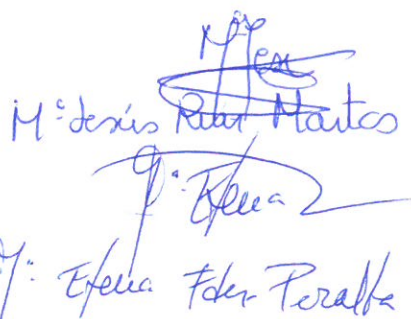 Mª Jes
Mª Jesús Ruiz Martos
Mª Elena
Mª: Elena Fdez Peralta